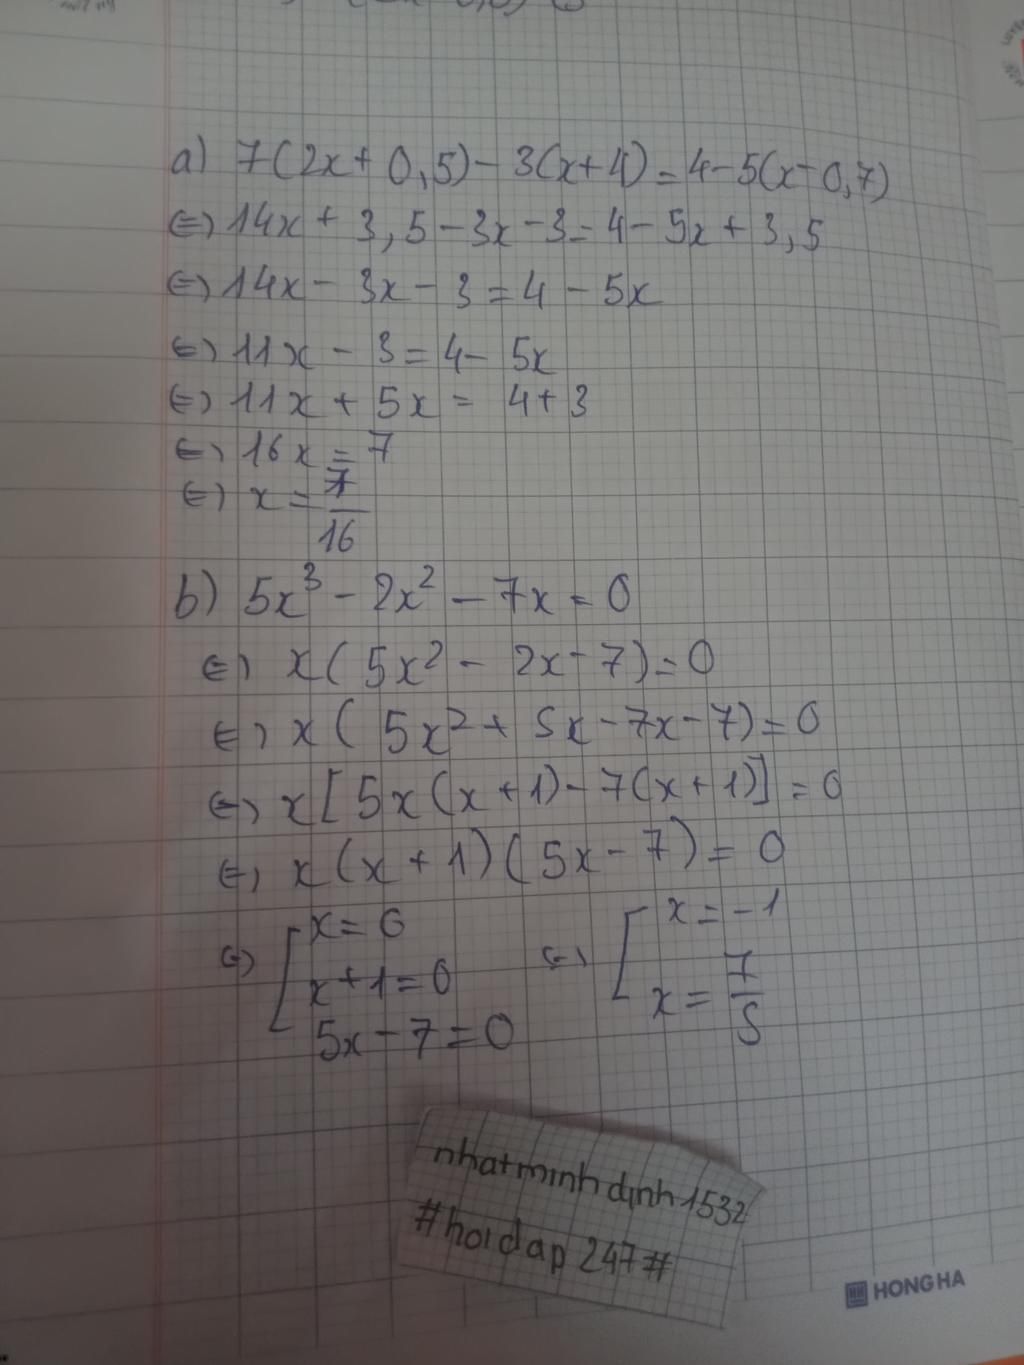 a) 7(2x + 0,5) - 3(x+4) = 4 - 5(x - 0,7)
⇔ 14x + 3,5 - 3x - 3 = 4 - 5x + 3,5
⇔ 14x - 3x - 3 = 4 - 5x
⇔ 11x - 3 = 4 - 5x
⇔ 11x + 5x = 4 + 3
⇔ 16x = 7
⇔ x = 7/16
b) 5x³ - 2x² - 7x = 0
⇔ x(5x² - 2x - 7) = 0
⇔ x(5x² + 5x - 7x - 7) = 0
⇔ x[5x(x+1) - 7(x+1)] = 0
⇔ x(x+1)(5x - 7) = 0
⇔ [ x = 0
x + 1 = 0
5x - 7 = 0
⇔ [ x = -1
x = 7/5
nhatminhdinh1532
#hoidap247#
HONG HA